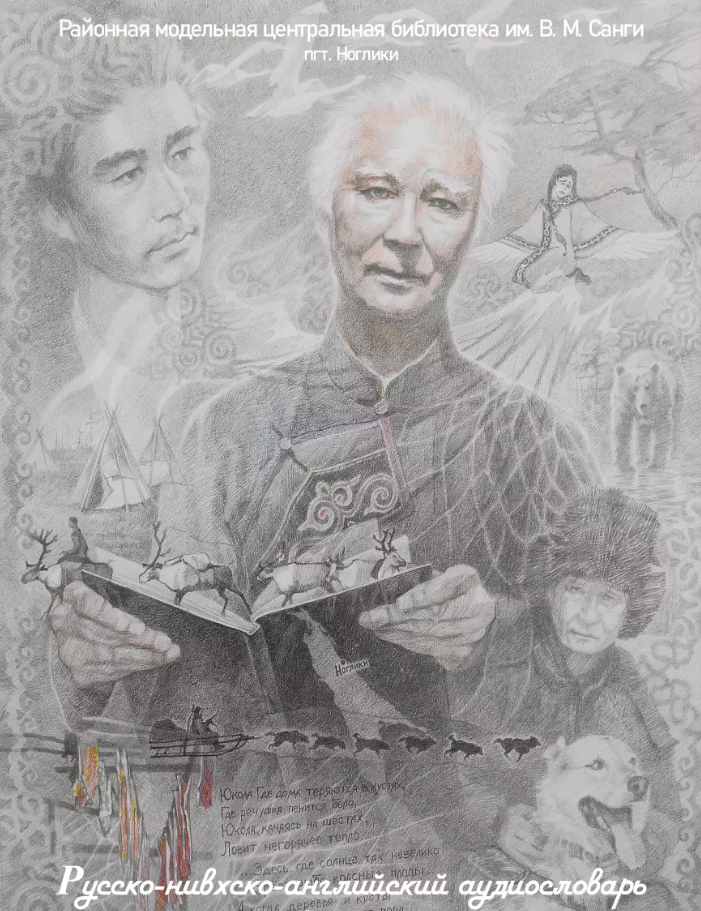 Районная модельная центральная библиотека им. В. М. Санги
пгт. Ноглики
Ноглики
Юкола. Где дома теряются в кустах,
Где речушка пенится бело,
Юкола, качаясь на шестах,
Ловит негорячее тепло.
...Здесь, где солнце так невелико
красные плоды...
А когда деревья и кусты
Русско-нивхско-английский аудиословарь